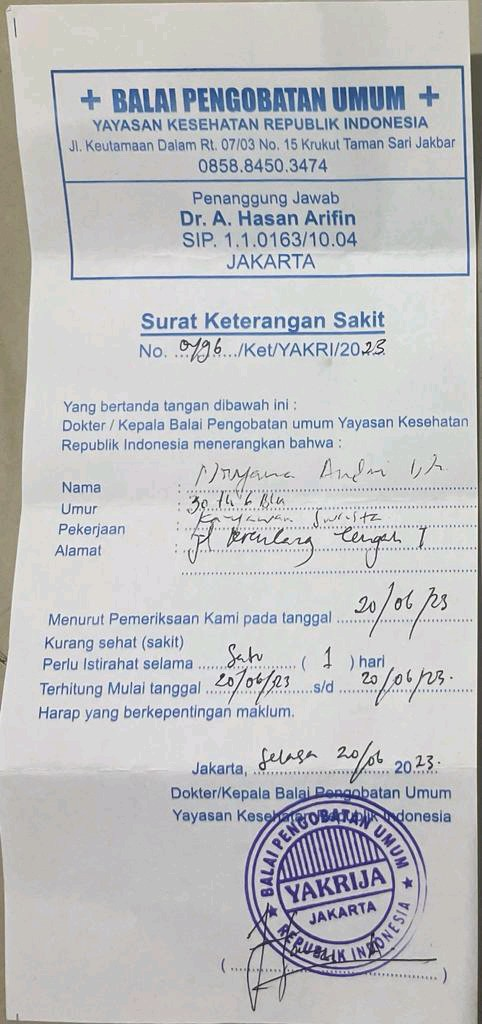 + BALAI PENGOBATAN UMUM +
YAYASAN KESEHATAN REPUBLIK INDONESIA
Jl. Keutamaan Dalam Rt. 07/03 No. 15 Krukut Taman Sari Jakbar
0858.8450.3474
Penanggung Jawab
Dr. A. Hasan Arifin
SIP. 1.1.0163/10.04
JAKARTA
Surat Keterangan Sakit
No. 0796 /Ket/YAKRI/2023
Yang bertanda tangan dibawah ini :
Dokter / Kepala Balai Pengobatan umum Yayasan Kesehatan
Republik Indonesia menerangkan bahwa :
Nama :
Umur : 30 th 6 Bln
Pekerjaan : Karyawan Swasta
Alamat : Jl Tengah I
Menurut Pemeriksaan Kami pada tanggal 20/06/23
Kurang sehat (sakit)
Perlu Istirahat selama Satu ( 1 ) hari
Terhitung Mulai tanggal 20/06/23 s/d 20/06/23.
Harap yang berkepentingan maklum.
Jakarta, Selasa 20/06 2023.
Dokter/Kepala Balai Pengobatan Umum
Yayasan Kesehatan Republik Indonesia
BALAI PENGOBATAN UMUM
YAKRIJA
JAKARTA
REPUBLIK INDONESIA